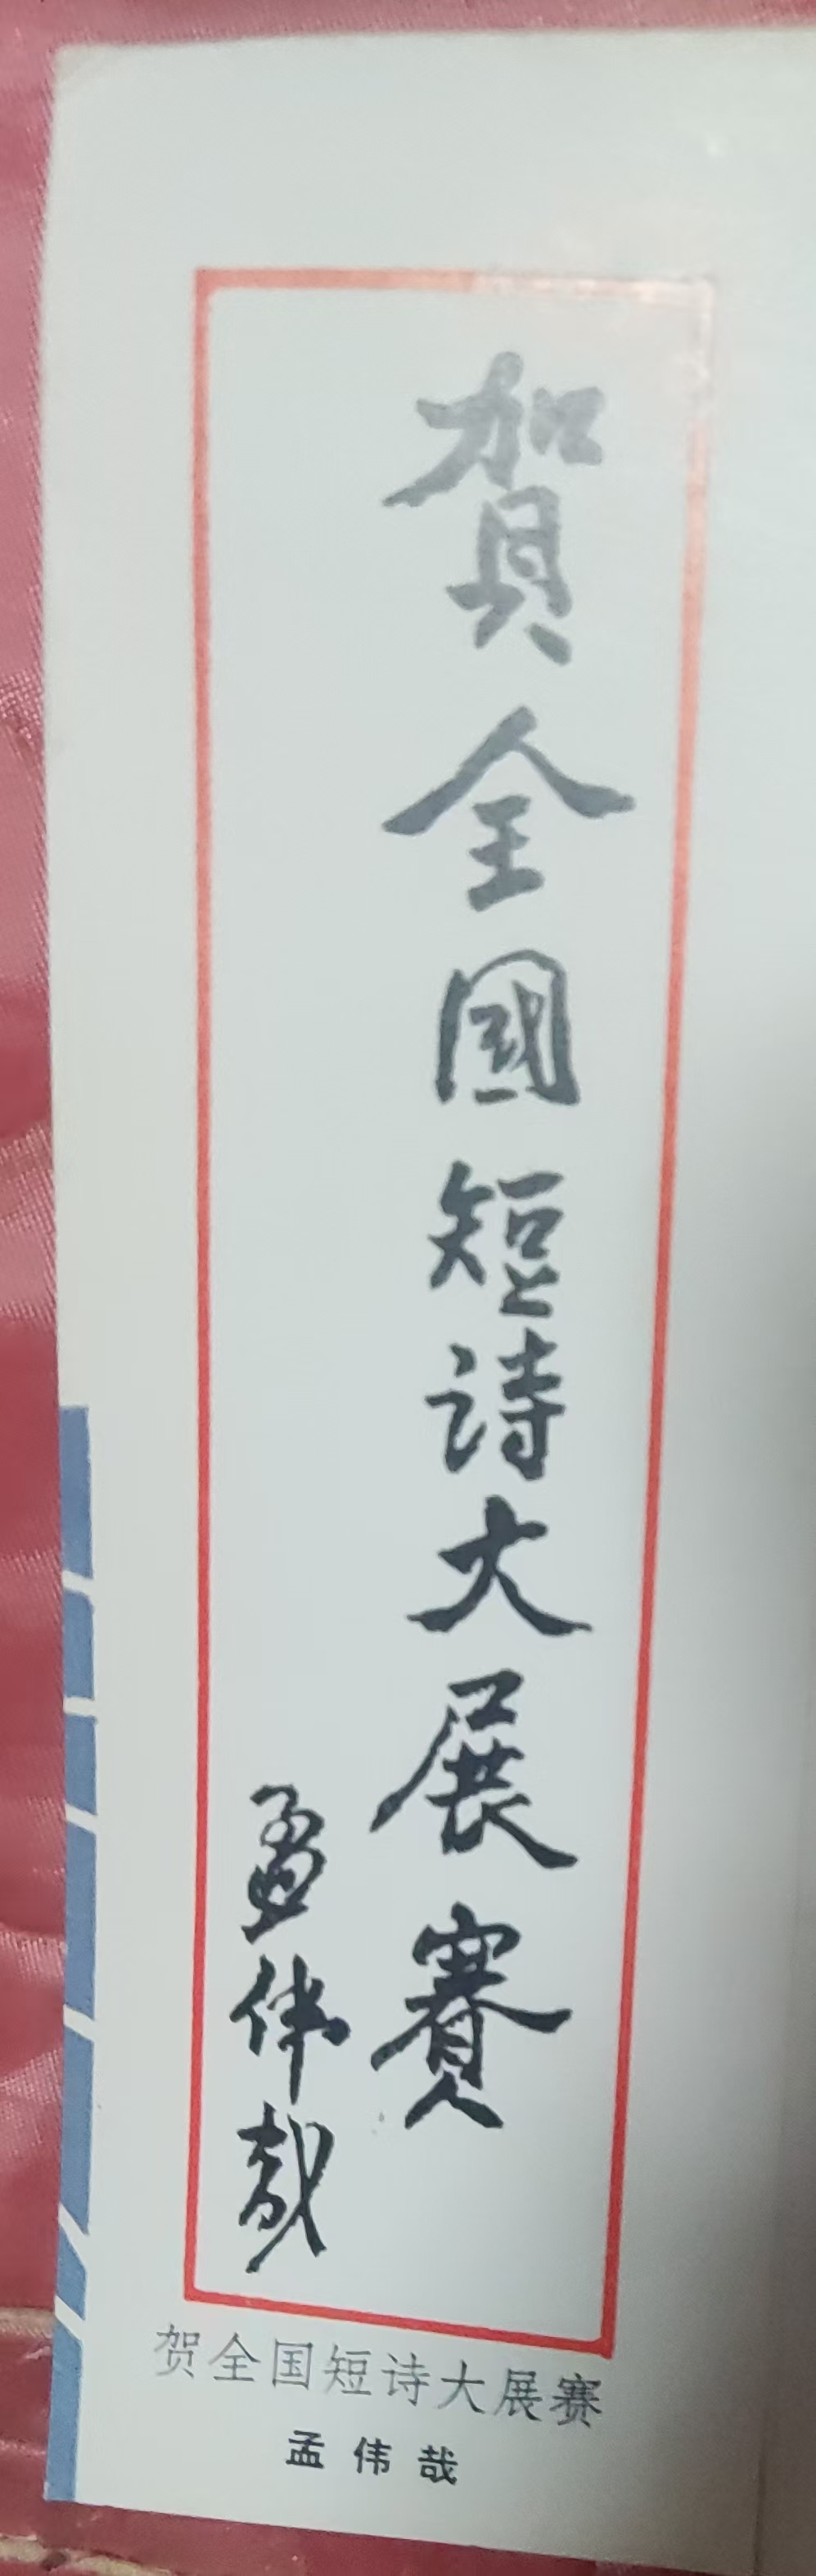 賀全國短诗大展賽
孟伟哉
贺全国短诗大展赛
孟伟哉